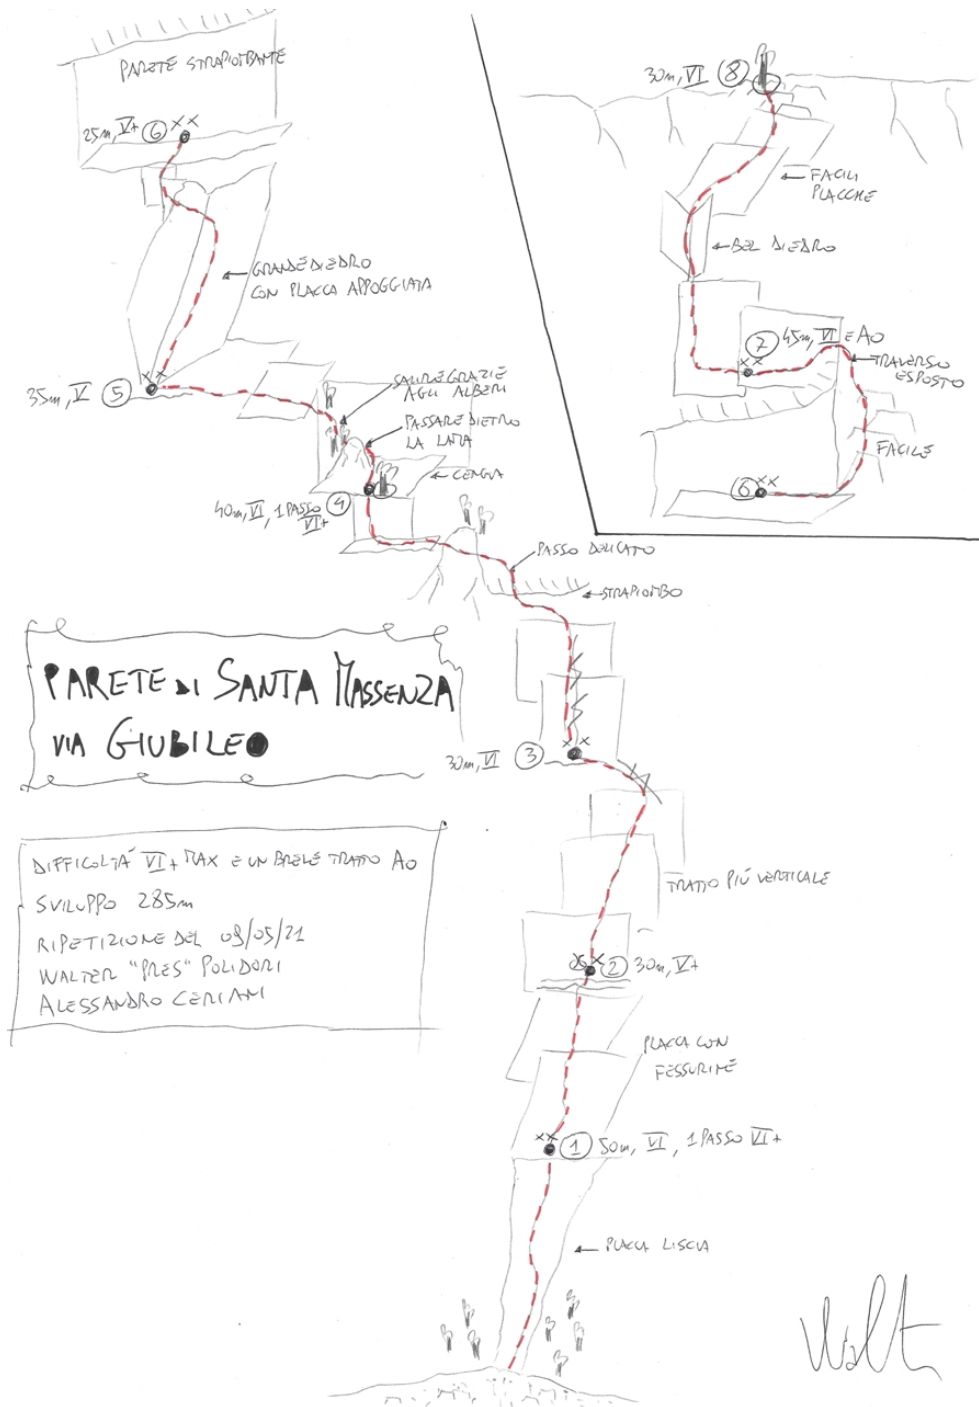 PARETE STRAPIOMBANTE
25m, V+ 6 XX
GRANDE DIEDRO
CON PLACCA APPOGGIATA
35m, V 5
SALIRE GRAZIE
AGLI ALBERI
PASSARE DIETRO
LA LAMA
CENGIA
40m, VI, 1 PASSO
VI+
4
PASSO DELICATO
STRAPIOMBO
30m, VI 8
FACILI
PLACCHE
BEL DIEDRO
7 45m, VI E A0
XX
TRAVERSO
ESPOSTO
FACILE
6 XX
PARETE DI SANTA MASSENZA
VIA GIUBILEO
30m, VI 3
XX
DIFFICOLTÁ VI+ MAX E UN BREVE TRATTO A0
SVILUPPO 285m
RIPETIZIONE DEL 09/05/21
WALTER "PRES" POLIDORI
ALESSANDRO CERIANI
TRATTO PIÚ VERTICALE
2 30m, V+
PLACCA CON
FESSURINE
XX
1 50m, VI, 1 PASSO VI+
PLACCA LISCIA
Walt